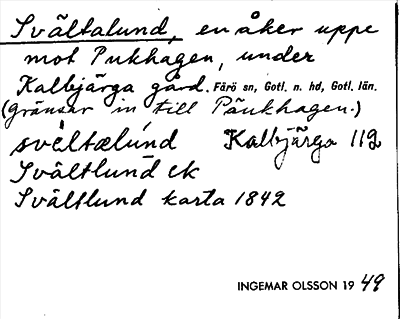 Svältalund, en åker uppe
mot Pukhagen, under
Kalbjärga gård. Fårö sn, Gotl. n. hd, Gotl. län.
(gränsar in till Päukhagen.)
svèltælúnd Kalbjärga 112
Svältlund ek
Svältlund karta 1842
INGEMAR OLSSON 19 49